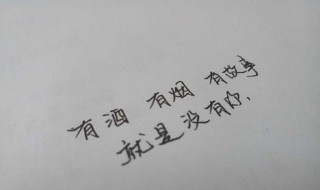 有酒 有烟 有故事
就是没有你.